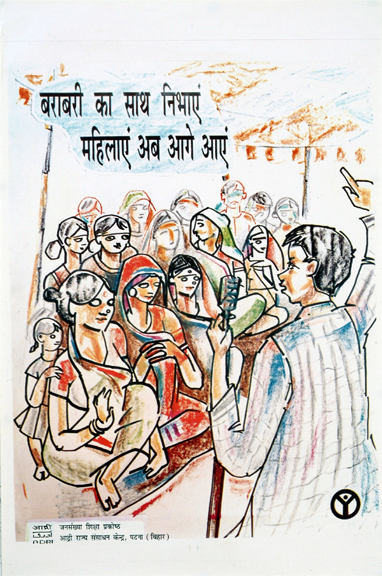 बराबरी का साथ निभाएं
महिलाएं अब आगे आएं
आद्री
ADRI
जनसंख्या शिक्षा प्रकोष्ठ
आद्री राज्य संसाधन केन्द्र, पटना (बिहार)